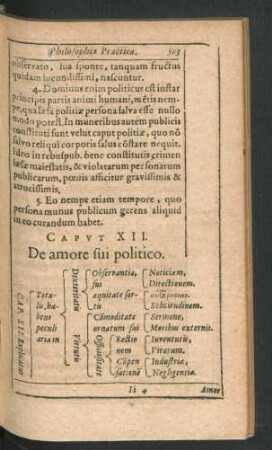 Philosophiæ Practicæ. 503
observato, sua sponte, tanquam fructus
quidam iucundissimi, nascuntur.
4. Dominus enim politicus est instar
principis partis animi humani, mẽtis nem-
pe, qua læsa politiæ persona salva esse nullo
modo potest. In muneribus autem publicis
constituti sunt velut caput politiæ, quo nõ
salvo reliqui corporis salus cõstare nequit.
Ideo in rebuspub. bene constitutis crimen
læsæ maiestatis, & violatarum personarum
publicarum, pœnis afficitur gravissimis &
atrocissimis.
5. Eo nempe etiam tempore, quo
persona munus publicum gerens aliquid
in eo curandum habet.
CAPVT XII.
De amore sui politico.
CAP. XII. Explicatur
Tota-
lu, ha-
bens
peculi
aria in
Dexteritatis
Observantia,
sui
æquitate for-
tu
Noticiam,
Directionem.
Solicitudinem.
Virtutis
Cõmoditate
ornatum sui
Sermone,
Moribus externis.
Officiositate
Rectio
nem
Iuventutis,
Vitarum.
Cõpen
satione
Industriæ,
Negligentiæ.
Ii 4 Amor